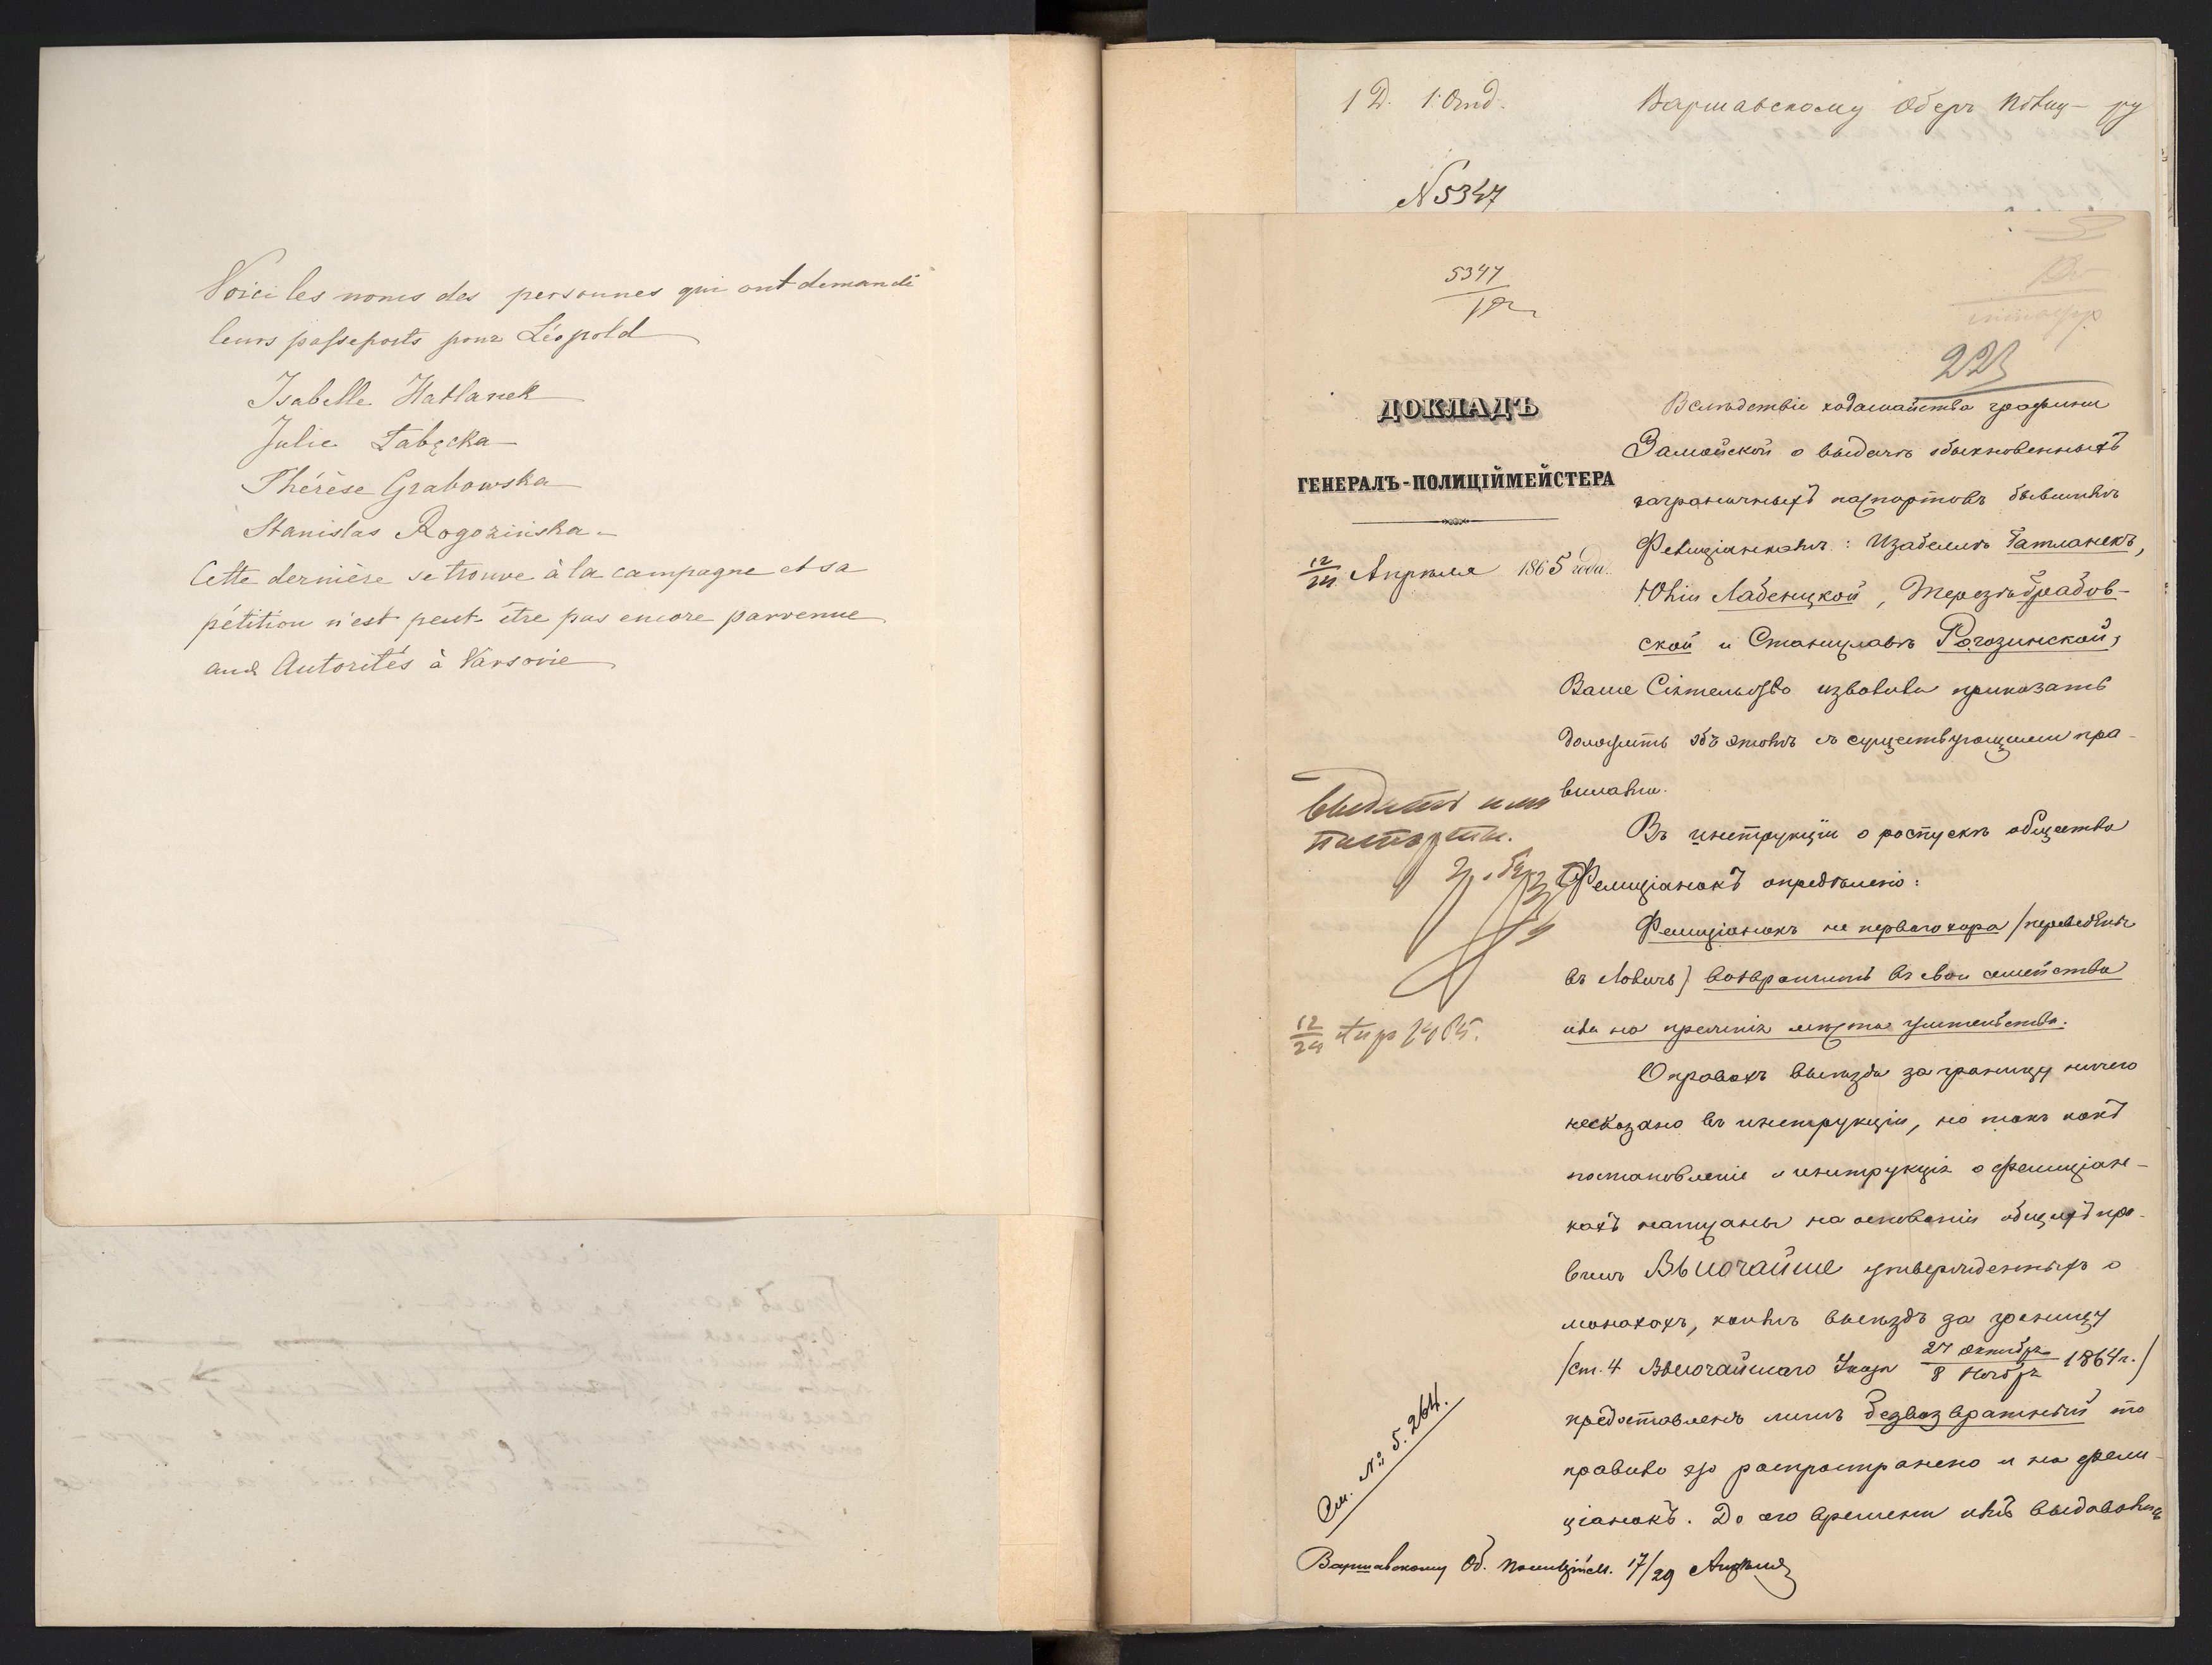 Voici les noms des personnes qui ont demandé
leurs passeports pour Léopold
Isabelle Hatlanek
Julie Łabęcka
Thérèse Grabowska
Stanislas Rogozińska
Cette dernière se trouve à la campagne et sa
pétition n'est peut-être pas encore parvenue
aux Autorités à Varsovie
1 Д. 1. Отд.
Варшавскому Оберъ
N 5347
5347
223
ДОКЛАДЪ
ГЕНЕРАЛЪ-ПОЛИЦІЙМЕЙСТЕРА
12/24 Апрѣля 1865 года.
Вслѣдствіе ходатайства графини
Замойской о выдачѣ обыкновенныхъ
заграничныхъ паспортовъ бывшимъ
Фелиціанкамъ: Изабеллѣ Гатланекъ,
Юліи Лабенцкой, Терезѣ Грабов-
ской и Станиславѣ Рогозинской,
Ваше Сіятельство изволили приказать
доложить объ этомъ съ существующими пра-
вилами.
Въ инструкціи о роспускѣ общества
Фелиціанокъ опредѣлено:
Фелиціанокъ не перваго хора (переведены
въ Ловичь) возвратить въ свои семейства
или на прежнія мѣста жительства.
О правахъ выѣзда за границу ничего
несказано въ инструкціи, но такъ какъ
постановленіе и инструкція о Фелиціан-
кахъ написаны на основаніи общихъ пра-
вилъ Высочайше утвержденныхъ о
монахахъ, коимъ выѣздъ за границу
(ст. 4 Высочайшаго Указа 27 Октября/8 Ноября 1864 г.)
предоставленъ лишь безвозвратный то
правило это распространено и на Фели-
ціанокъ. До сего времени имъ выдавались
выдать имъ
паспорты.
12/24 Апр 1865.
См. № 5.264.
Варшавскому Об. Полиційм. 17/29 Апрѣля